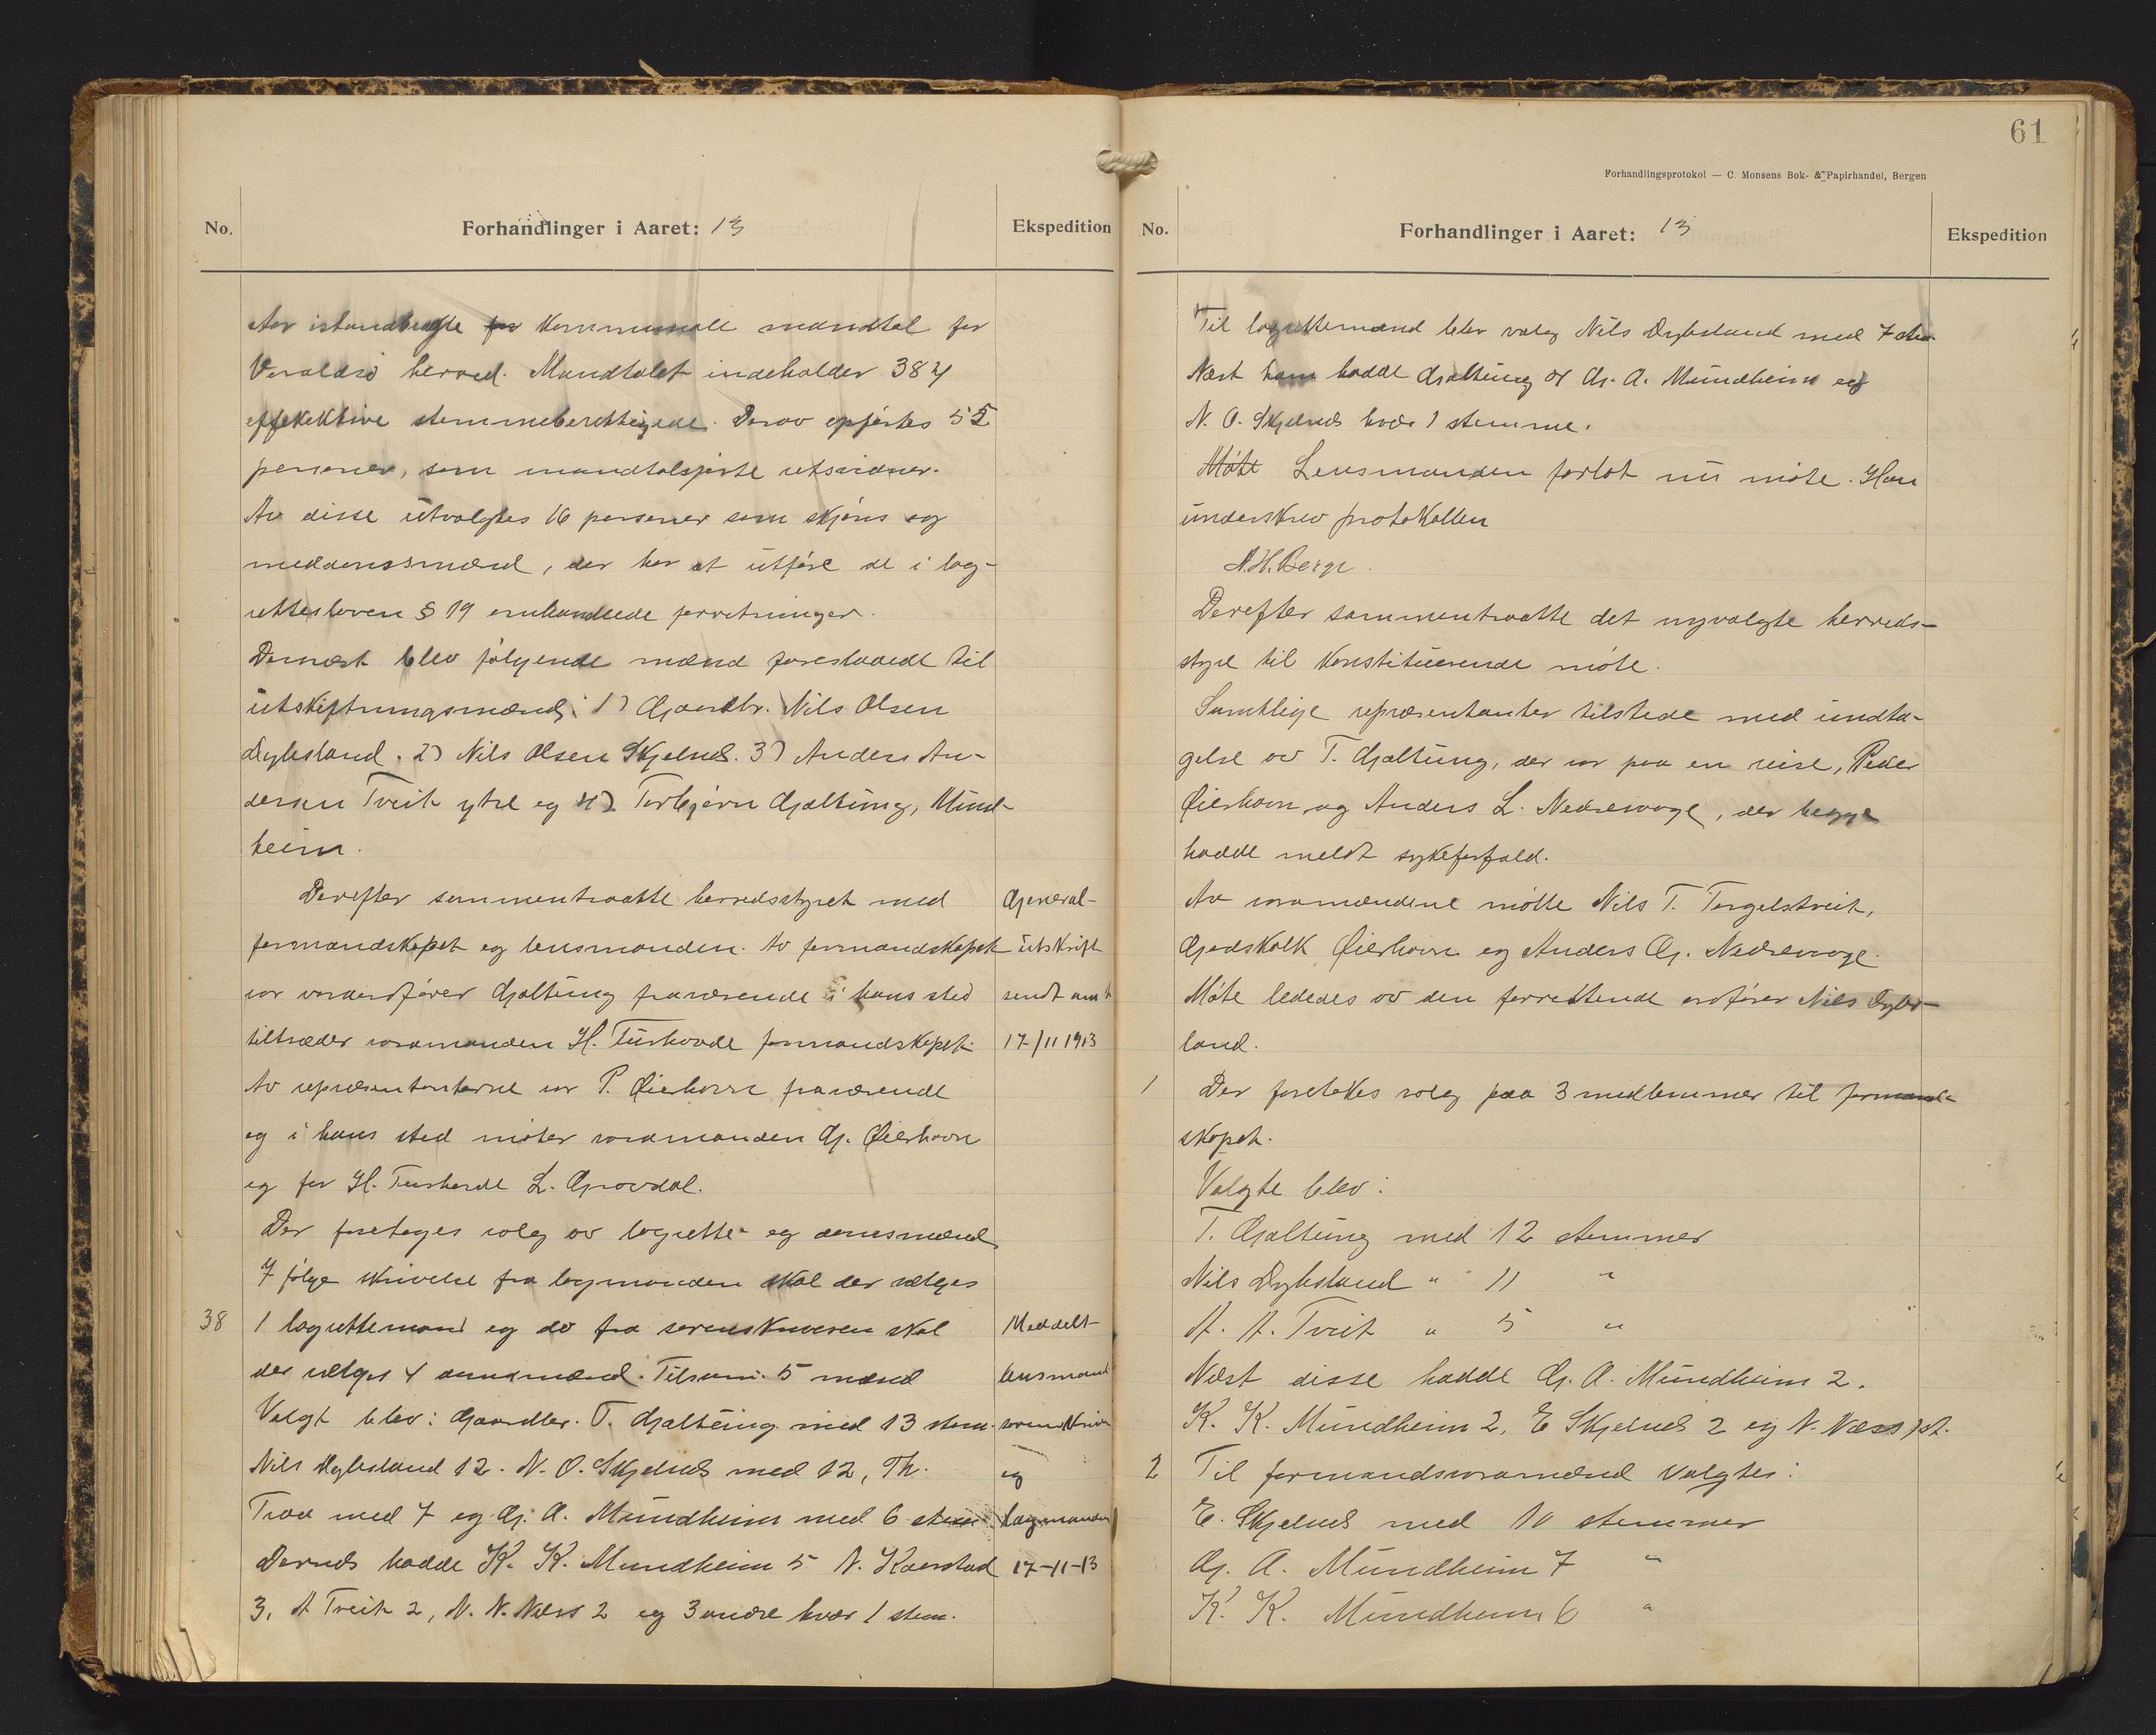 No.
Forhandlinger i Aaret: 13
Ekspedition
det istandbragte for Kommunale mandtal for
Varaldsø herred. Mandtalet indeholder 384
effekektive stemmeberettigede. Derav opførtes 55
personer, som mandtalsførte utsvidner.
Av disse utvalgtes 16 personer som skjøns og
meddomsmænd, der har at utføre de i lag-
rettesloven § 19 omhandlede forretninger.
Dernæst blev følgende mænd foreslaaedt til
utskiftningsmænd: 1) Gaardbr. Nils Olsen
Dybsland. 2) Nils Olsen Skjelnes. 3) Anders An-
dersen Tveit ytre og 4) Torbjørn Gjøltung, Mund-
heim.
Derefter sammentraatte herredsstyret med
formandskapet og lensmanden. Av formandskapet
var varaordfører Gjøltung fraværende i hans sted
tiltræder varamanden H. Tushovde formandskapet.
Av repræsentanterne var P. Øierhavn fraværende
og i hans sted møter varamanden G. Øierhavn
og for H. Tushovde L. Grovdal.
Der foretages valg av lagrette- og domsmænd
I følge skrivelse fra lagmanden skal der vælges
38 1 lagrettemand og do fra sorenskriveren skal
der vælges 4 domsmænd. Tilsam. 5 mænd
Valgt blev: Gaardbr. T. Gjøltung med 13 stem.
Nils Dybsland 12. N. O. Skjelnes med 12, Th.
Traa med 7 og G. A. Mundheim med 6 stem
Dernæs hadde K. K. Mundheim 5 N. Kaarstad
3, A Tveit 2, N. N. Næss 2 og 3 andre hvær 1 stem.
General-
utskrift
sendt amt
17/11 1913
Meddelt
lensmand
sorenskriv
og
lagmanden
17-11-13
61
Forhandlingsprotokol — C. Monsens Bok- & Papirhandel, Bergen
No.
Forhandlinger i Aaret: 13
Ekspedition
Til lagrettemand blev valg Nils Dybsland med 7 ste.
Næst ham hadde Gjøltung og G. A. Mundheim og
N. O. Skjelnes hvær 1 stemme.
Møte Lensmanden forlot nu møte. Han
underskrev protokollen
N. H. Berge.
Derefter sammentraatte det nyvalgte herreds-
styre til konstituerende møte.
Samtlige repræsentanter tilstede med undta-
gelse av T. Gjøltung, der var paa en reise, Peder
Øierhavn og Anders L. Nedrevaage, der begge
hadde meldt sykeforfald.
Av varamændene møtte Nils T. Torgelstveit,
Godskalk Øierhavn og Anders G. Nedrevaage.
Møte lededes av den forrettende ordfører Nils Dybs-
land.
1 Der foretokes valg paa 3 medlemmer til formand-
skapet.
Valgte blev:
T. Gjøltung med 12 stemmer
Nils Dybsland " 11 "
A. A. Tveit " 5 "
Næst disse hadde G. A. Mundheim 2.
K. K. Mundheim 2, E Skjelnes 2 og N. Næss 1 st.
2 Til formandsvaramænd valgtes:
E. Skjelnes med 10 stemmer
G. A. Mundheim 7 "
K. K. Mundheim 6 "